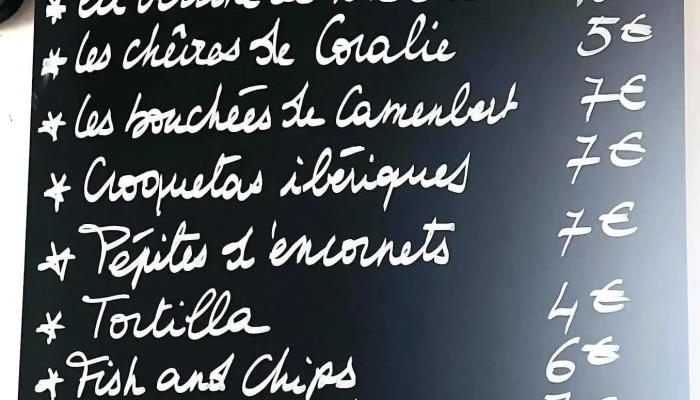 * Les chèvres de Coralie 5€
* Les bouchées de Camenbert 7€
* Croquetas ibériques 7€
* Pépites d'encornets 7€
* Tortilla 4€
* Fish and Chips 6€